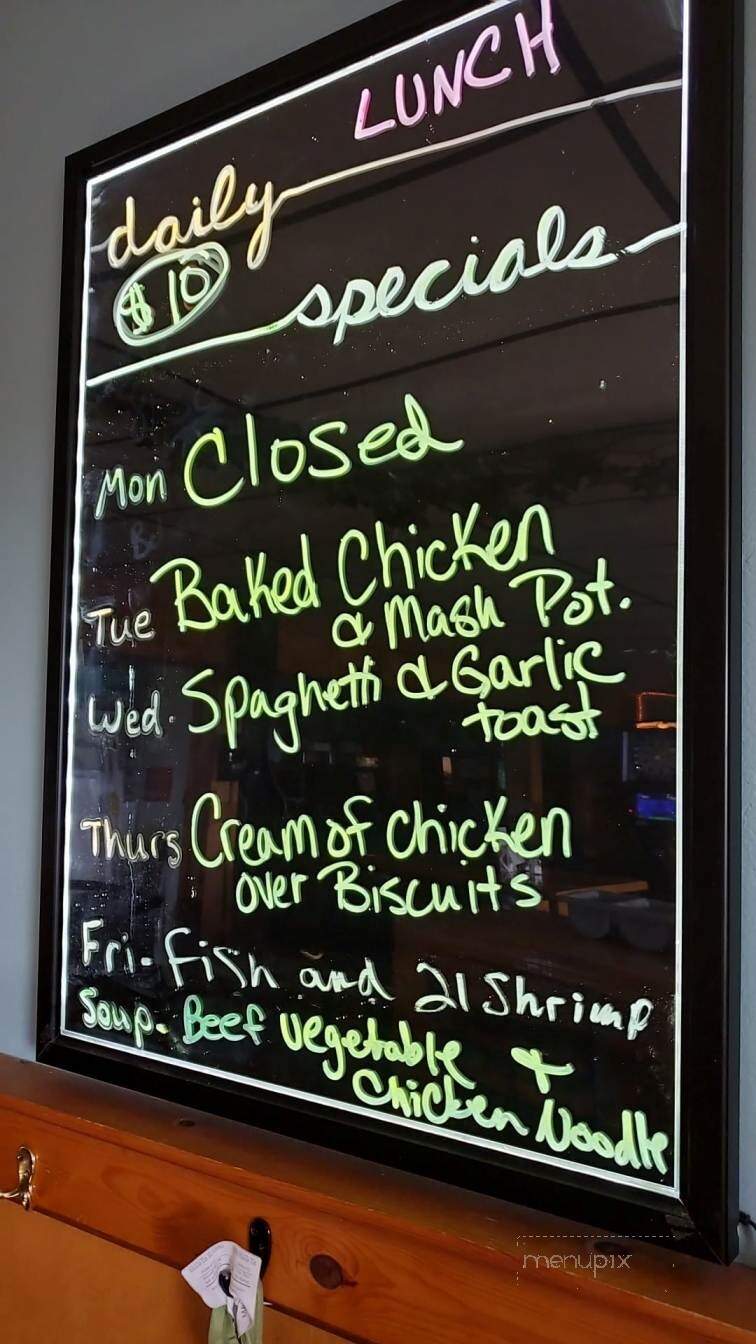 LUNCH
daily
$10
specials
Mon Closed
Tue Baked Chicken
& Mash Pot.
Wed. Spaghetti & Garlic
toast
Thurs Cream of chicken
over Biscuits
Fri- fish and 21 Shrimp
Soup. Beef vegetable &
Chicken Noodle
menupix